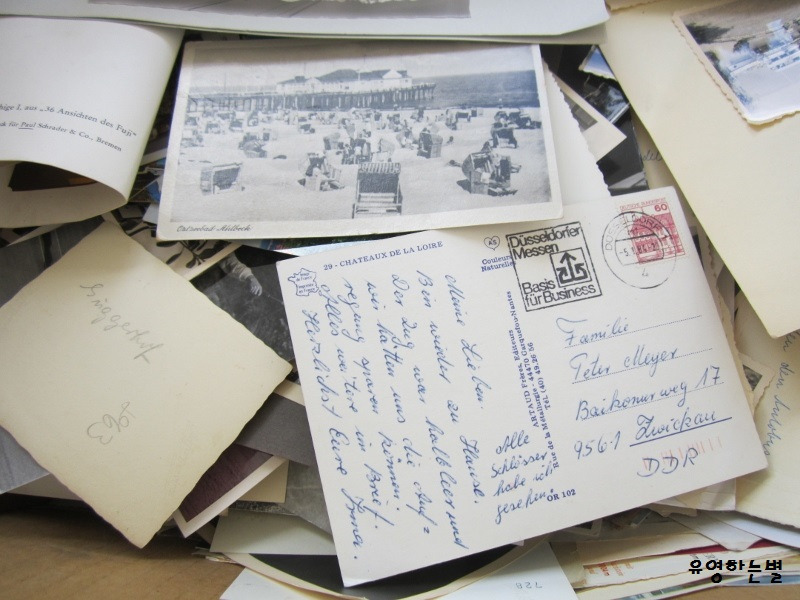 hige I, aus „36 Ansichten des Fuji"
k für Paul Schrader & Co., Bremen
Ostseebad Ahlbeck
29 - CHATEAUX DE LA LOIRE
Couleurs
Naturelles
Düsseldorfer
Messen
Basis
für Business
DEUTSCHE BUNDESPOST
60
Meine Lieben.
Bin wieder zu Hause.
Der Zug war halbleer und
wir hatten uns die Auf=
regung sparen können.
Alles weitere im Brief.
Herzlichst Eure Irma.
Alle
Schlösser
habe ich
gesehen.
ARTAUD Frères, Editeurs
Rue de la Métallurgie - 44470 Carquefou-Nantes
Tél. (40) 49.26.56
OR 102
Familie
Peter Meyer
Baikonurweg 17
9561 Zwickau
DDR
63
728
유영하는별